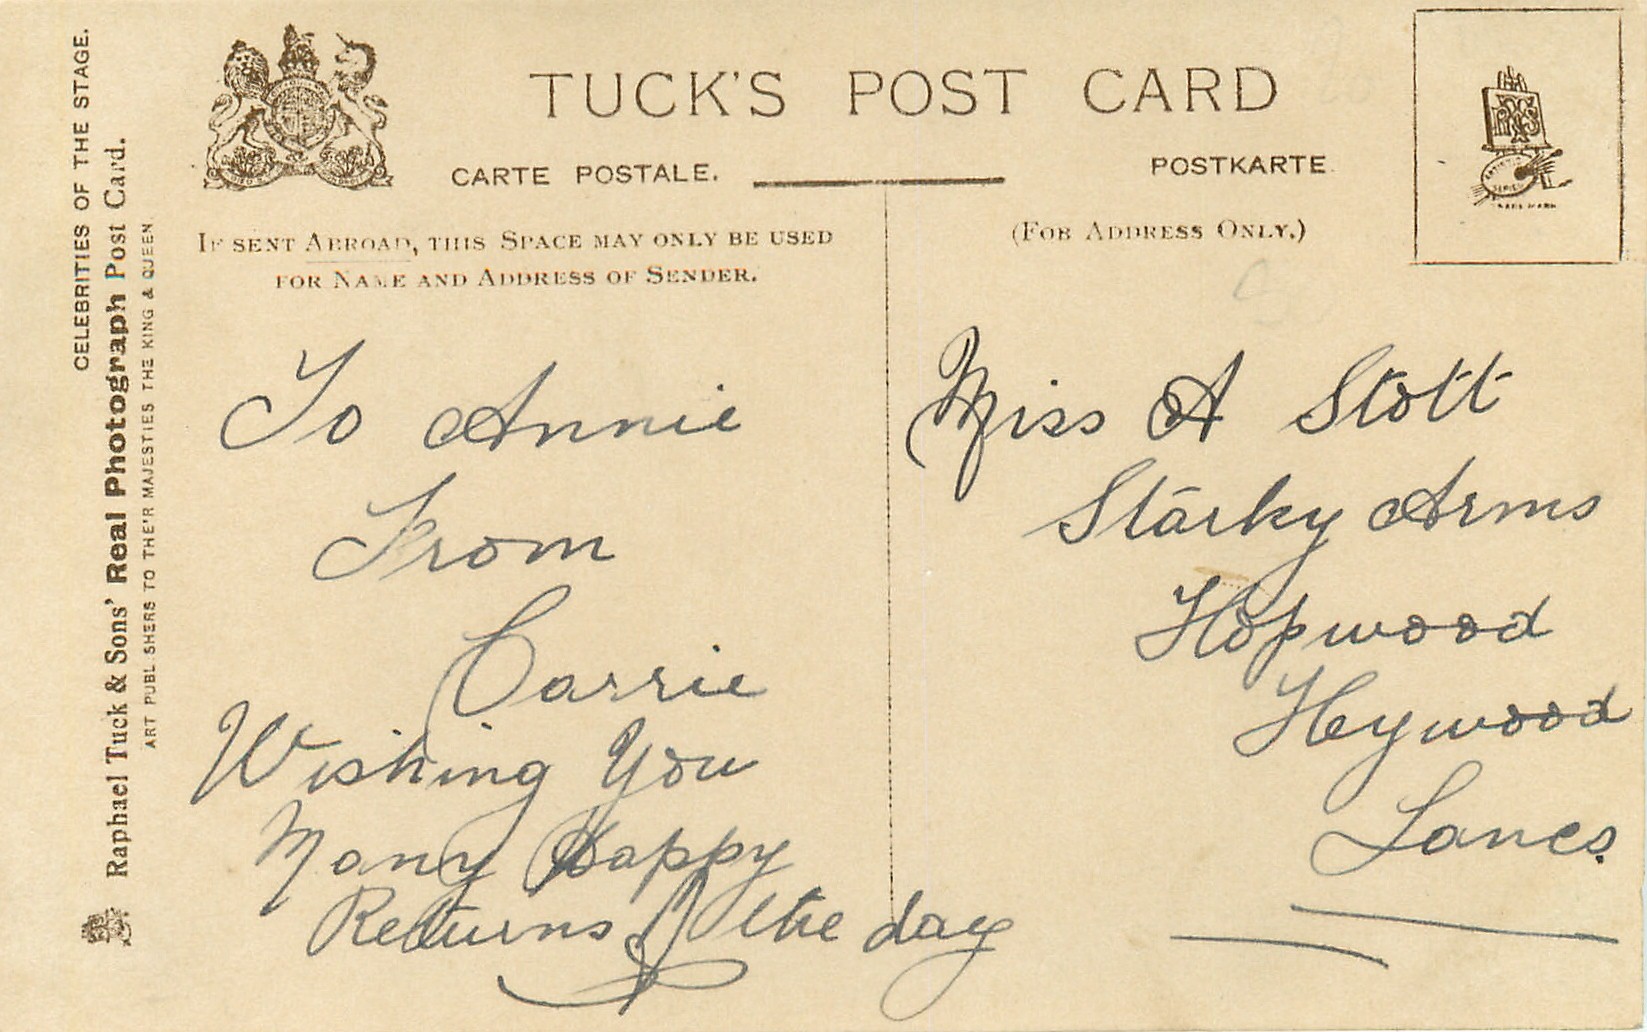 CELEBRITIES OF THE STAGE.
Raphael Tuck & Sons' Real Photograph Post Card.
ART PUBLISHERS TO THEIR MAJESTIES THE KING & QUEEN
TUCK'S POST CARD
CARTE POSTALE.
POSTKARTE
IF SENT ABROAD, THIS SPACE MAY ONLY BE USED
FOR NAME AND ADDRESS OF SENDER.
(FOR ADDRESS ONLY.)
TRADE MARK
To Annie
From
Carrie
Wishing You
Many Happy
Returns of the day
Miss A Stott
Starky Arms
Hopwood
Heywood
Lancs.